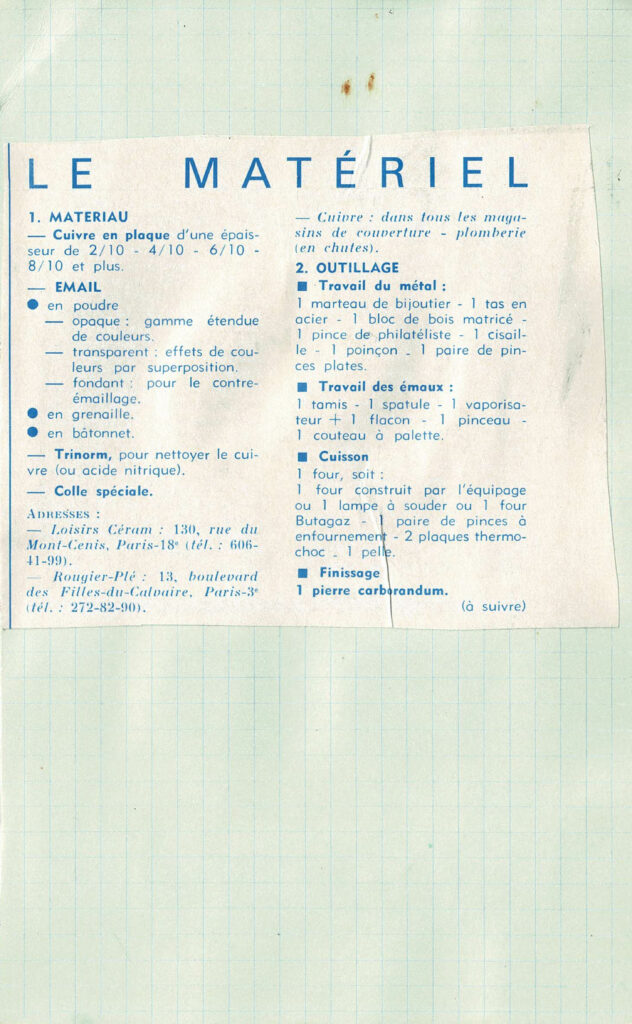 LE MATÉRIEL
1. MATERIAU
— Cuivre en plaque d'une épais-
seur de 2/10 - 4/10 - 6/10 -
8/10 et plus.
— EMAIL
● en poudre
— opaque : gamme étendue
de couleurs.
— transparent : effets de cou-
leurs par superposition.
— fondant : pour le contre-
émaillage.
● en grenaille.
● en bâtonnet.
— Trinorm, pour nettoyer le cui-
vre (ou acide nitrique).
— Colle spéciale.
ADRESSES :
— Loisirs Céram : 130, rue du
Mont-Cenis, Paris-18e (tél. : 606-
41-99).
— Rougier-Plé : 13, boulevard
des Filles-du-Calvaire, Paris-3e
(tél. : 272-82-90).
— Cuivre : dans tous les maga-
sins de couverture - plomberie
(en chutes).
2. OUTILLAGE
■ Travail du métal :
1 marteau de bijoutier - 1 tas en
acier - 1 bloc de bois matricé -
1 pince de philatéliste - 1 cisail-
le - 1 poinçon - 1 paire de pin-
ces plates.
■ Travail des émaux :
1 tamis - 1 spatule - 1 vaporisa-
teur + 1 flacon - 1 pinceau -
1 couteau à palette.
■ Cuisson
1 four, soit :
1 four construit par l'équipage
ou 1 lampe à souder ou 1 four
Butagaz - 1 paire de pinces à
enfournement - 2 plaques thermo-
choc - 1 pelle.
■ Finissage
1 pierre carborandum.
(à suivre)